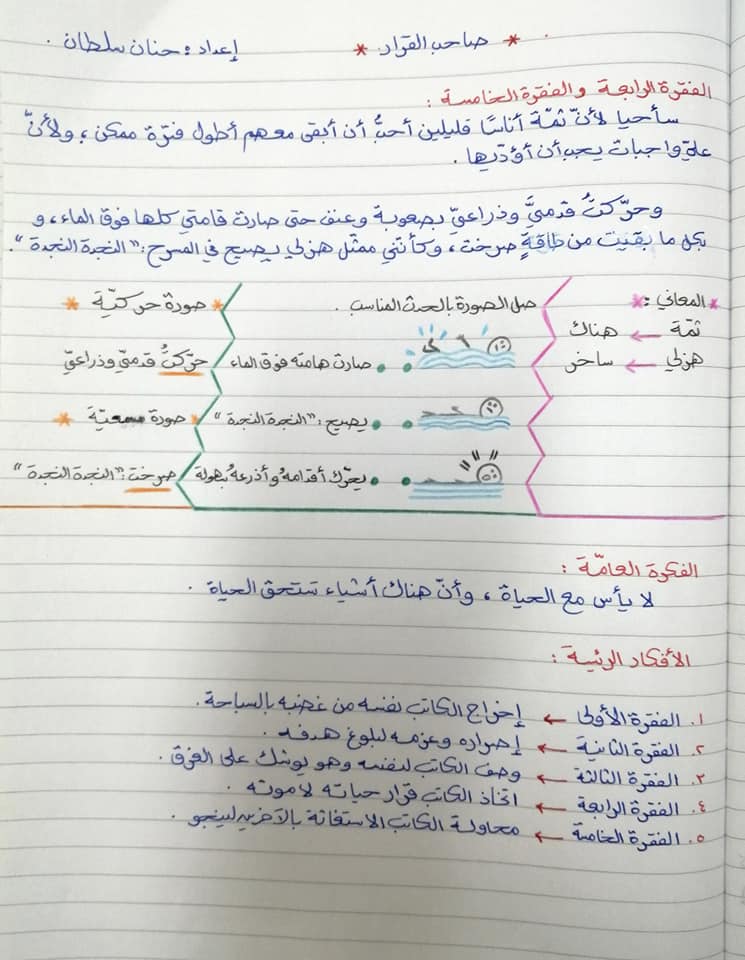 * صاحب القرار * إعداد: حنان سلطان.
الفقرة الرابعة والفقرة الخامسة:
سأحيا لأنّ ثمّة أناسًا قليلين أحبُّ أن أبقى معهم أطول فترة ممكن، ولأنّ
عليّ واجبات يجب أن أؤدّيها.
وحرّكتُ قدميَّ وذراعيّ بصعوبة وعنف حتى صارت قامتي كلها فوق الماء، و
بكل ما بقيت من طاقةٍ صرخت، وكأنني ممثل هزلي يصيح في المسرح: "النجدة النجدة".
* المعاني: *
ثمّة ← هناك
هزلي ← ساخر
صل الصورة بالحدث المناسب.
صارت هامته فوق الماء
يصيح: "النجدة النجدة"
يحرّك أقدامهُ وأذرعهُ بسهولة
* صورة حركيّة *
حرّكتُ قدميّ وذراعيّ
* صورة سمعيّة *
صرخت: "النجدة النجدة"
الفكرة العامّة:
لا يأس مع الحياة، وأنّ هناك أشياء تستحق الحياة.
الأفكار الرئيسة:
١. الفقرة الأولى ← إخراج الكاتب نفسه من غضبه بالسباحة.
٢. الفقرة الثانية ← إصراره وعزمه لبلوغ هدفه.
٣. الفقرة الثالثة ← وصف الكاتب لنفسه وهو يوشك على الغرق.
٤. الفقرة الرابعة ← اتخاذ الكاتب قرار حياته لا موته.
٥. الفقرة الخامسة ← محاولة الكاتب الاستغاثة بالآخرين لينجو.